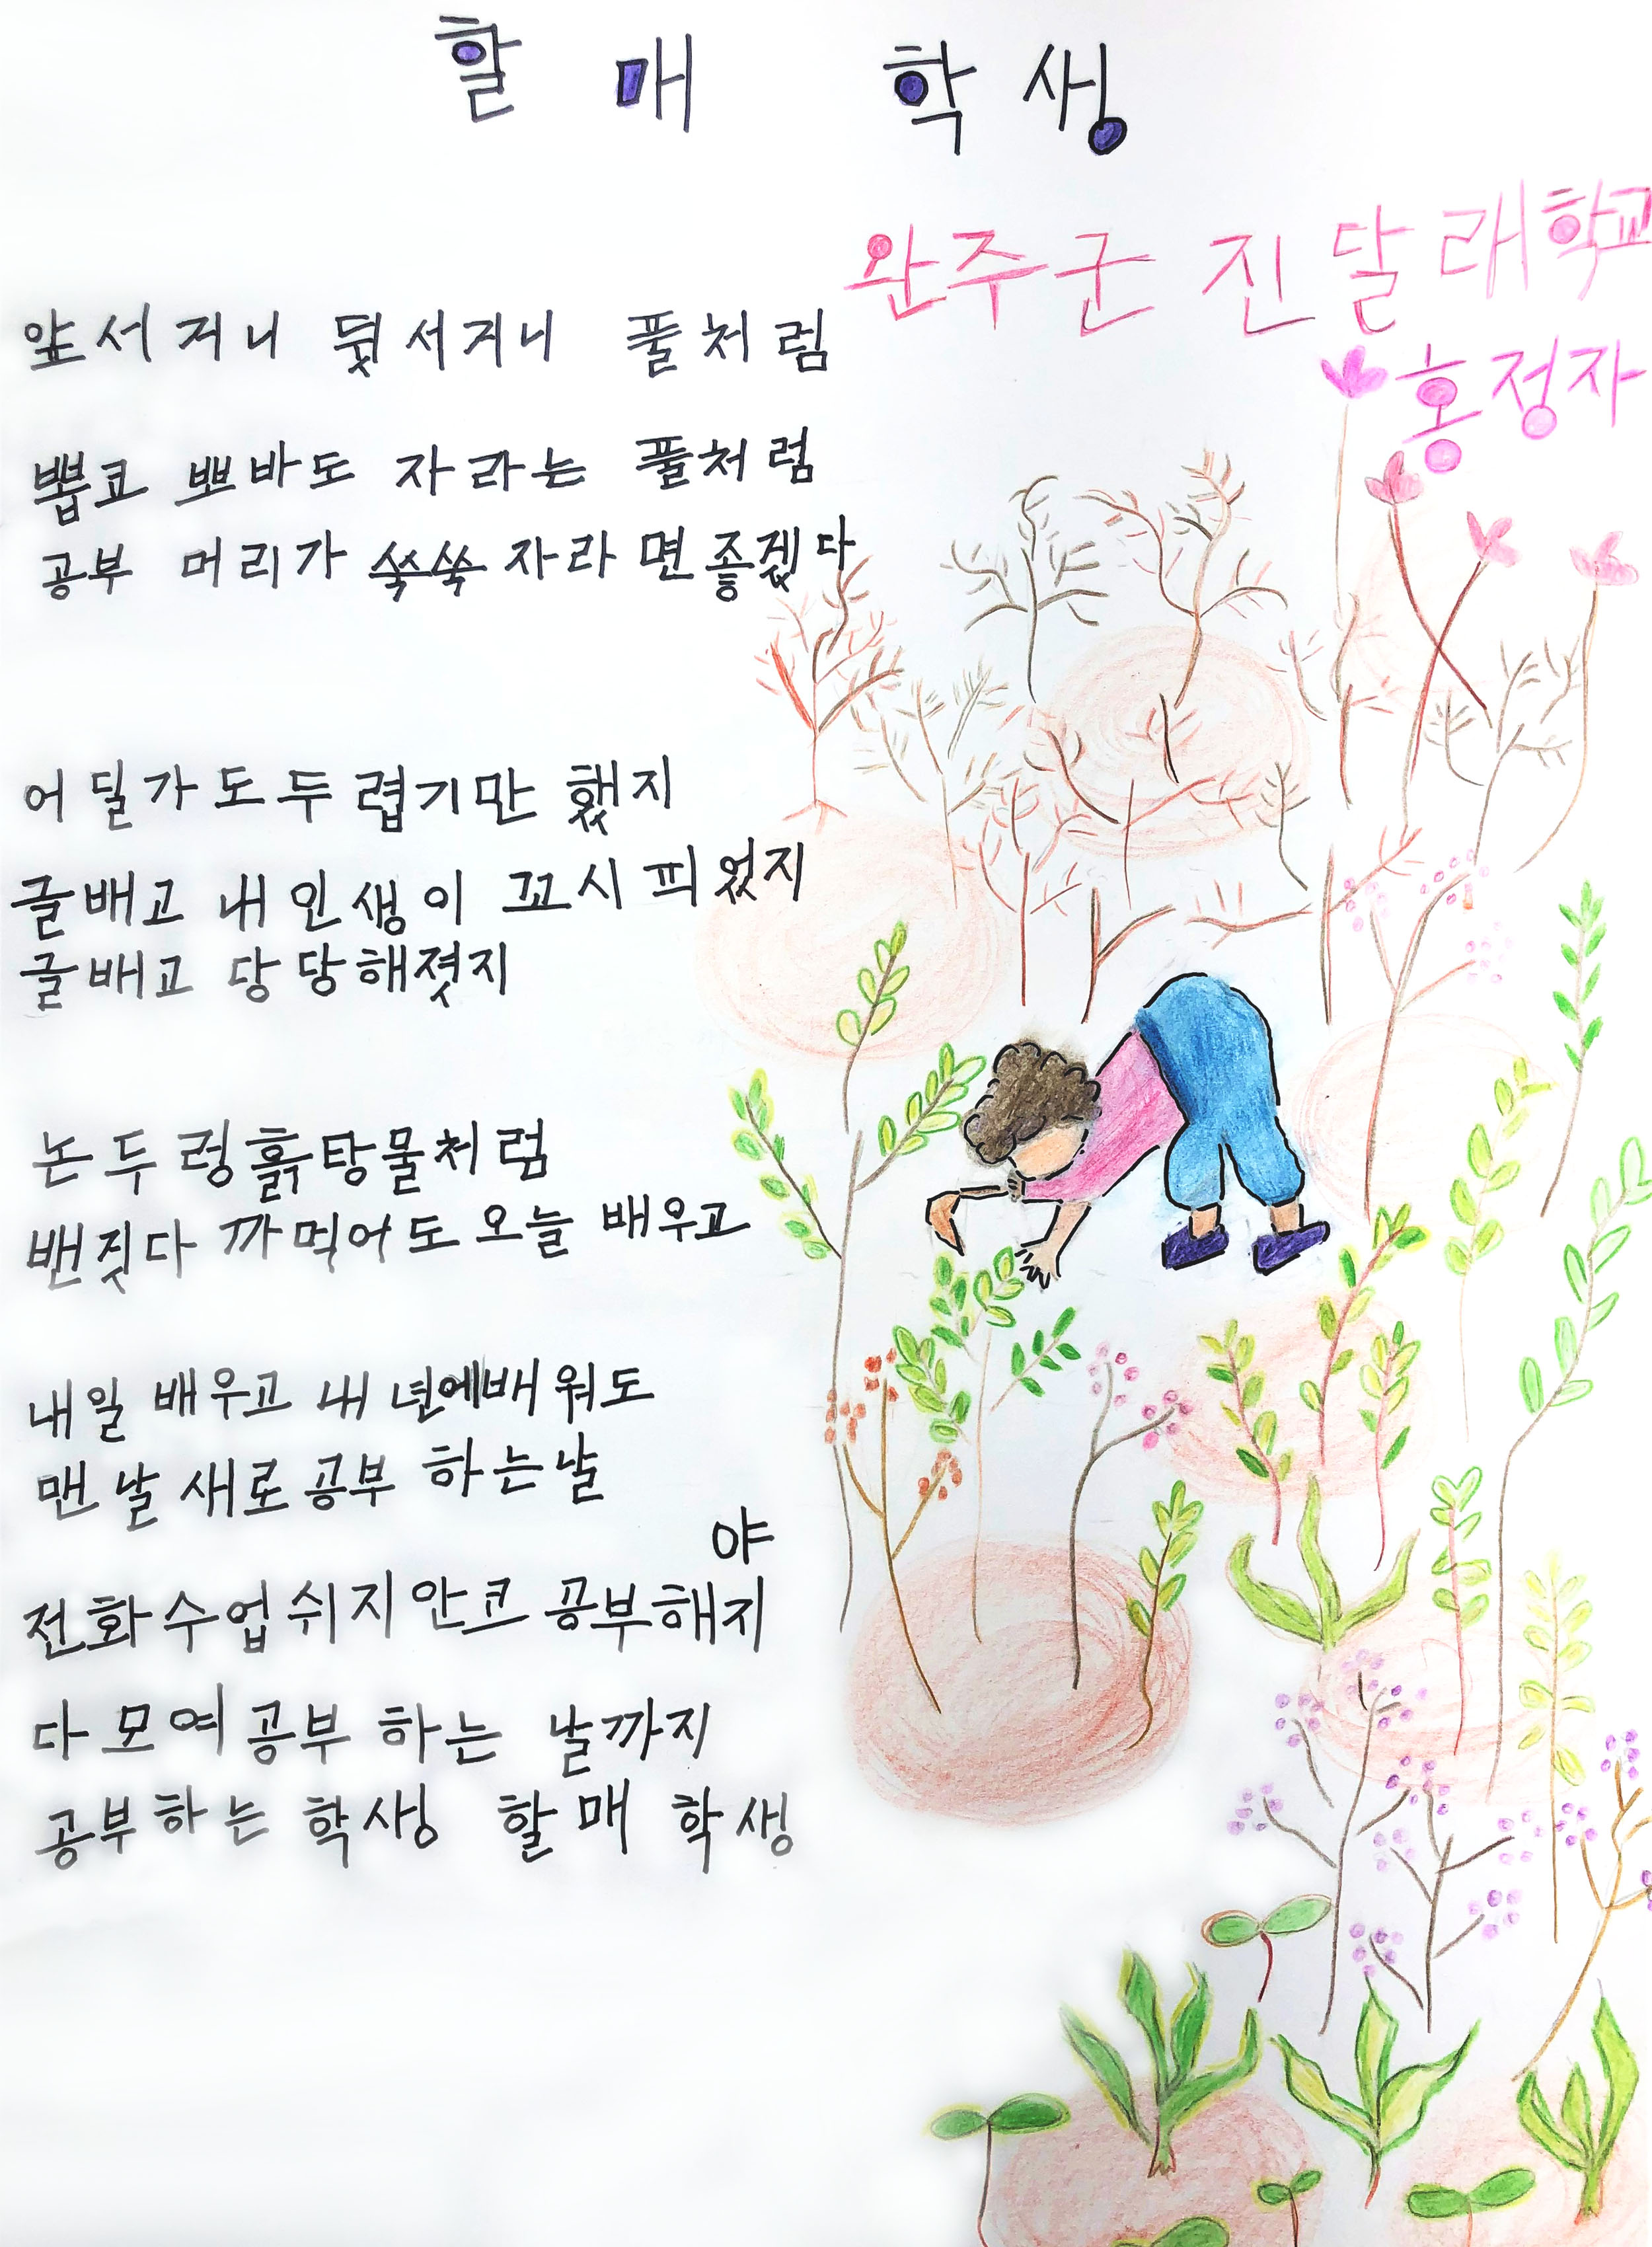 할매 학생
완주군 진달래학교
홍정자
앞서거니 뒷서거니 풀처럼
뽑고 뽀바도 자라는 풀처럼
공부 머리가 쑥쑥 자라면 좋겠다
어딜가도 두렵기만 했지
글배고 내 인생이 꼬시 피었지
글배고 당당해젓지
논두렁흙탕물처럼
밴짓다 까먹어도 오늘 배우고
내일 배우고 내년에배워도
맨날 새로공부 하는날
전화수업 쉬지안코 공부해야지
다모여공부 하는 날까지
공부하는 학생 할매 학생